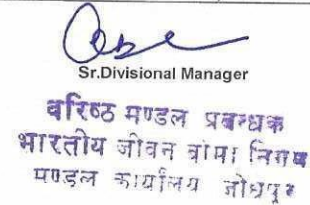 Sr.Divisional Manager
वरिष्ठ मण्डल प्रबन्धक
भारतीय जीवन बीमा निगम
मण्डल कार्यालय जोधपुर